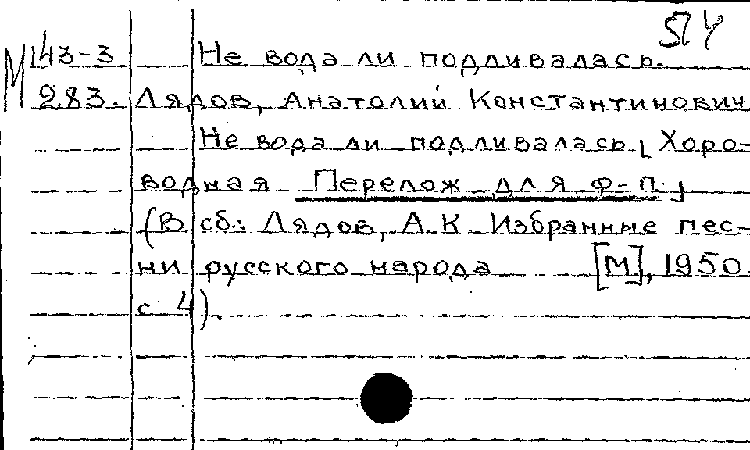 М 143-3 Не вода ли подливалась.
283. Лядов, Анатолий Константинович
Не вода ли подливалась, Хоро-
водная Перелож для ф-п.
(В сб: Лядов, А.К. Избранные пес-
ни русского народа [М], 1950.
с 4).